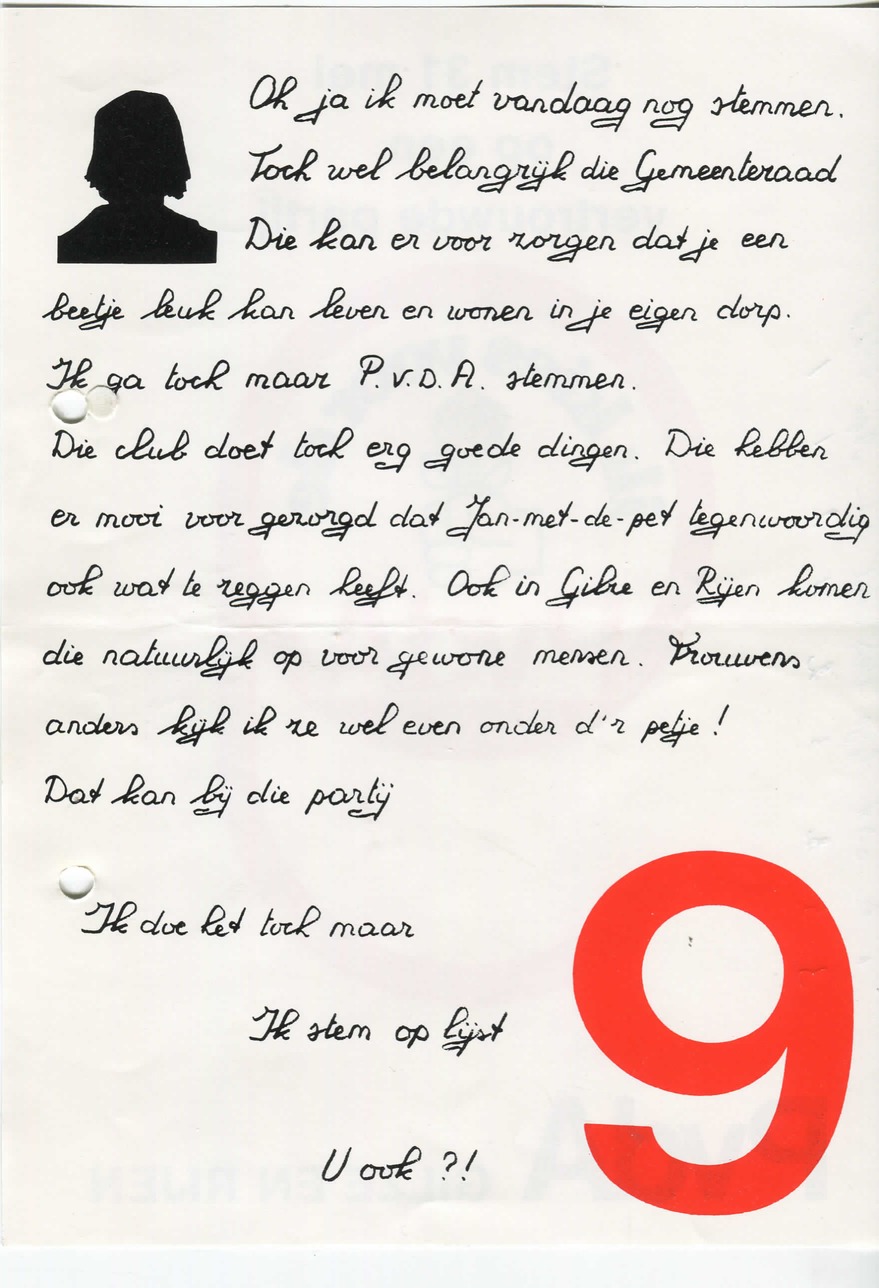 Oh ja ik moet vandaag nog stemmen.
Toch wel belangrijk die Gemeenteraad
Die kan er voor zorgen dat je een
beetje leuk kan leven en wonen in je eigen dorp.
Ik ga toch maar P.v.D.A. stemmen.
Die club doet toch erg goede dingen. Die hebben
er mooi voor gezorgd dat Jan-met-de-pet tegenwoordig
ook wat te zeggen heeft. Ook in Gilze en Rijen komen
die natuurlijk op voor gewone mensen. Trouwens
anders kijk ik ze wel even onder d'r petje!
Dat kan bij die partij
Ik doe het toch maar
Ik stem op lijst
9
U ook ?!